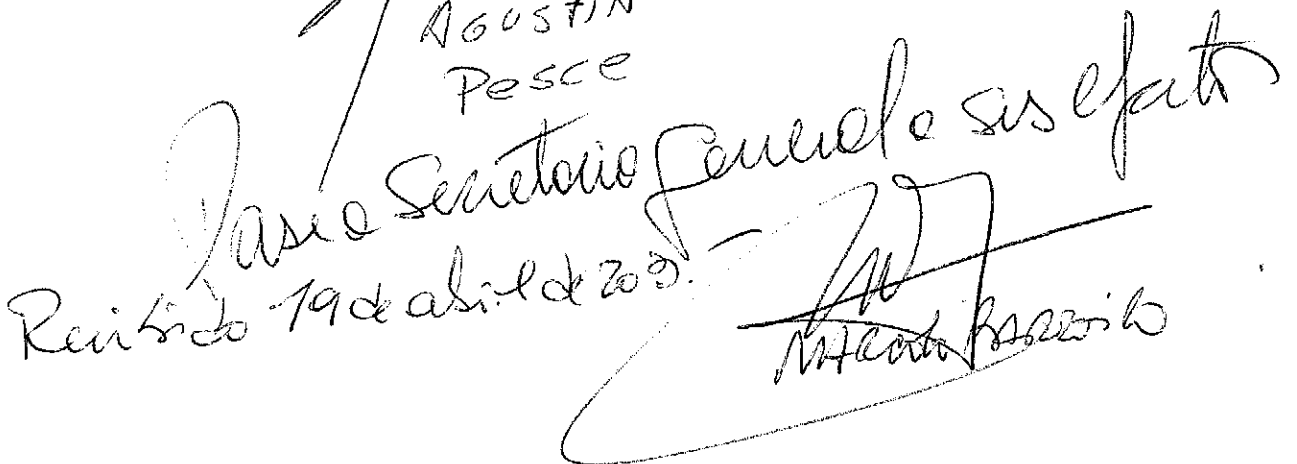 AGUSTIN
Pesce
Pase a Secretario General a sus efectos
Recibido 19 de abril de